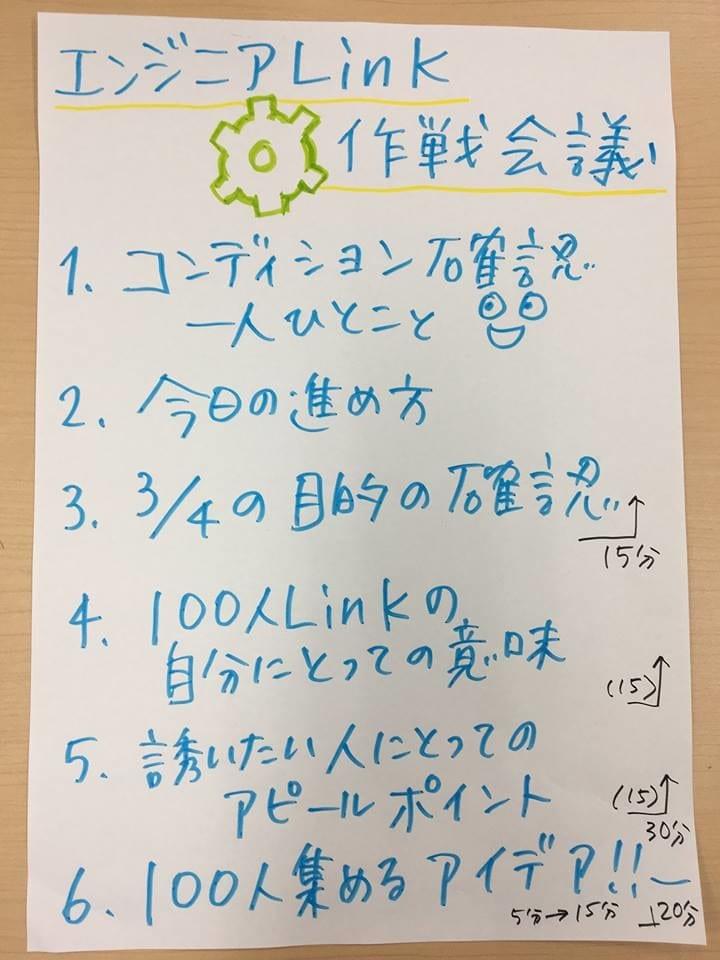 エンジニアLink
作戦会議
1. コンディション確認
一人ひとこと
2. 今日の進め方
3. 3/4の目的の確認
15分
4. 100人Linkの
自分にとっての意味
(15)
5. 誘いたい人にとっての
アピールポイント
(15)
30分
6. 100人集めるアイデア!!
5分→15分
20分